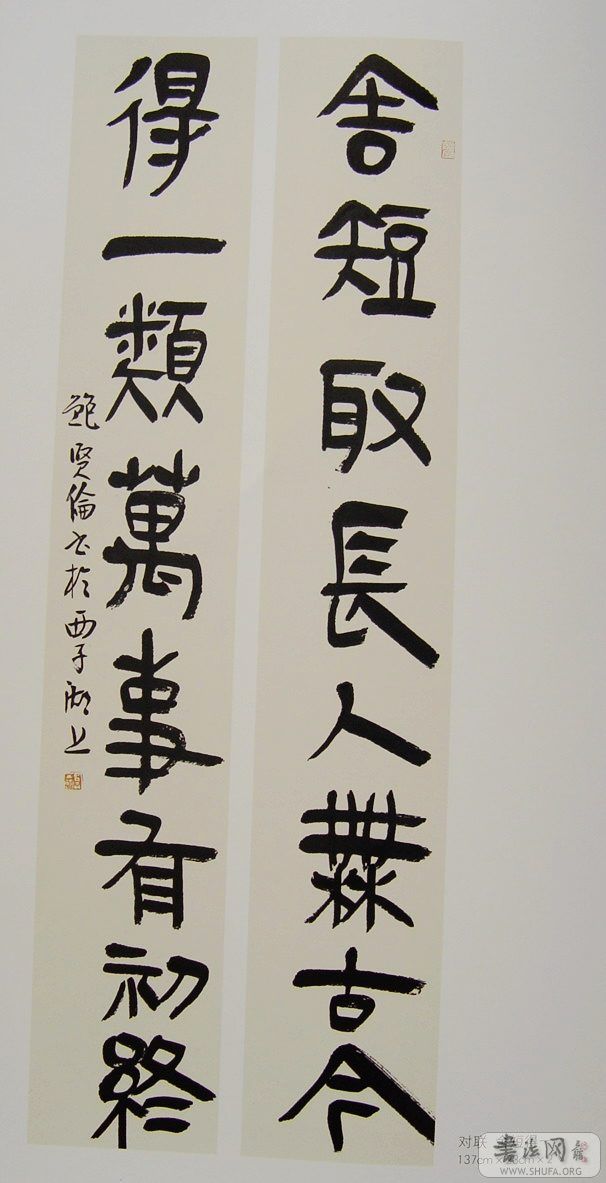 舍短取長人無古今
得一類萬事有初終
鮑賢倫書於西子湖上
对联
137cm×
书法网
WWW.SHUFA.ORG